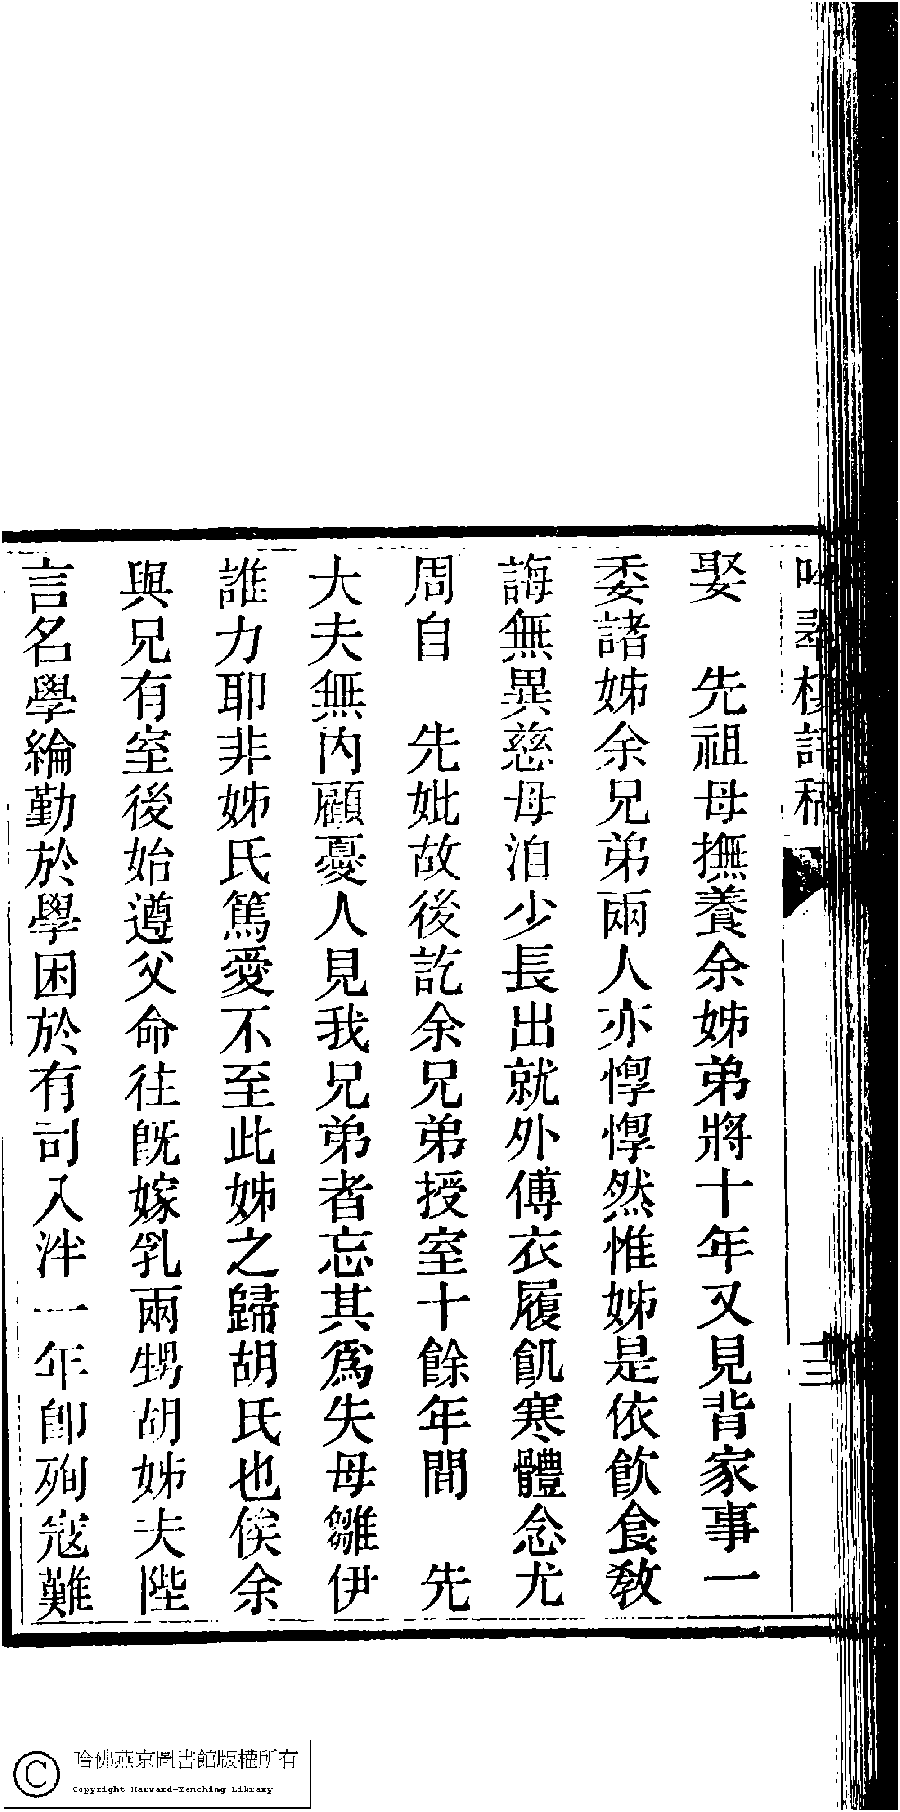 娶　先祖母撫養余姊弟將十年又見背家事一
委諸姊余兄弟兩人亦惸惸然惟姊是依飮食敎
誨無異慈母洎少長出就外傅衣履飢寒體念尤
周自　先妣故後訖余兄弟授室十餘年間　先
大夫無內顧憂人見我兄弟者忘其爲失母雛伊
誰力耶非姊氏篤愛不至此姊之歸胡氏也俟余
與兄有室後始遵父命往旣嫁乳兩甥胡姊夫陛
言名學綸勤於學困於有司入泮一年卽殉寇難
哈佛燕京圖書館版權所有
Copyright Harvard-Yenching Library